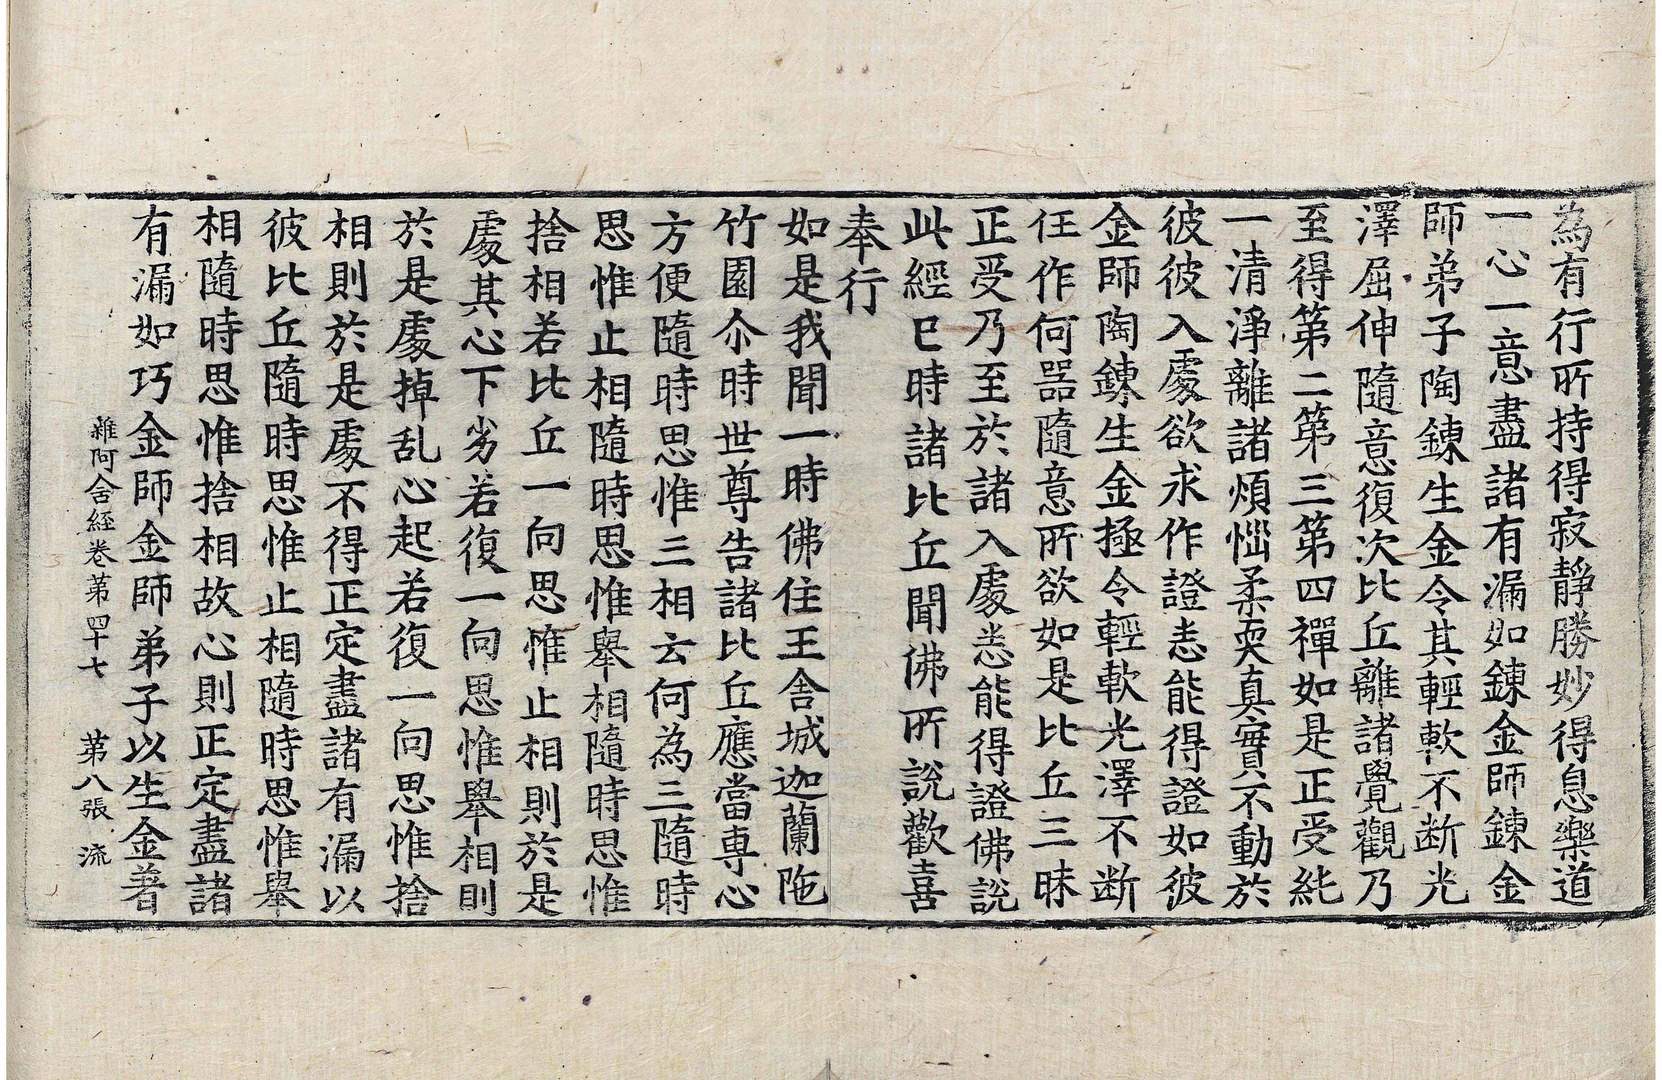 為有行所持得寂静勝妙得息樂道
一心一意盡諸有漏如鍊金師鍊金
師弟子陶鍊生金令其輕軟不断光
澤屈伸隨意復次比丘離諸覺觀乃
至得第二第三第四禪如是正受純
一清淨離諸煩惱柔耎真實不動於
彼彼入處欲求作證悉能得證如彼
金師陶鍊生金極令輕軟光澤不断
任作何器隨意所欲如是比丘三昧
正受乃至於諸入處悉能得證佛說
此經已時諸比丘聞佛所說歡喜
奉行
如是我聞一時佛住王舍城迦蘭陁
竹園尒時世尊告諸比丘應當専心
方便隨時思惟三相云何為三隨時
思惟止相隨時思惟舉相隨時思惟
捨相若比丘一向思惟止相則於是
處其心下劣若復一向思惟舉相則
於是處掉乱心起若復一向思惟捨
相則於是處不得正定盡諸有漏以
彼比丘隨時思惟止相隨時思惟舉
相隨時思惟捨相故心則正定盡諸
有漏如巧金師金師弟子以生金著
雜阿含経卷第四十七 第八張 流